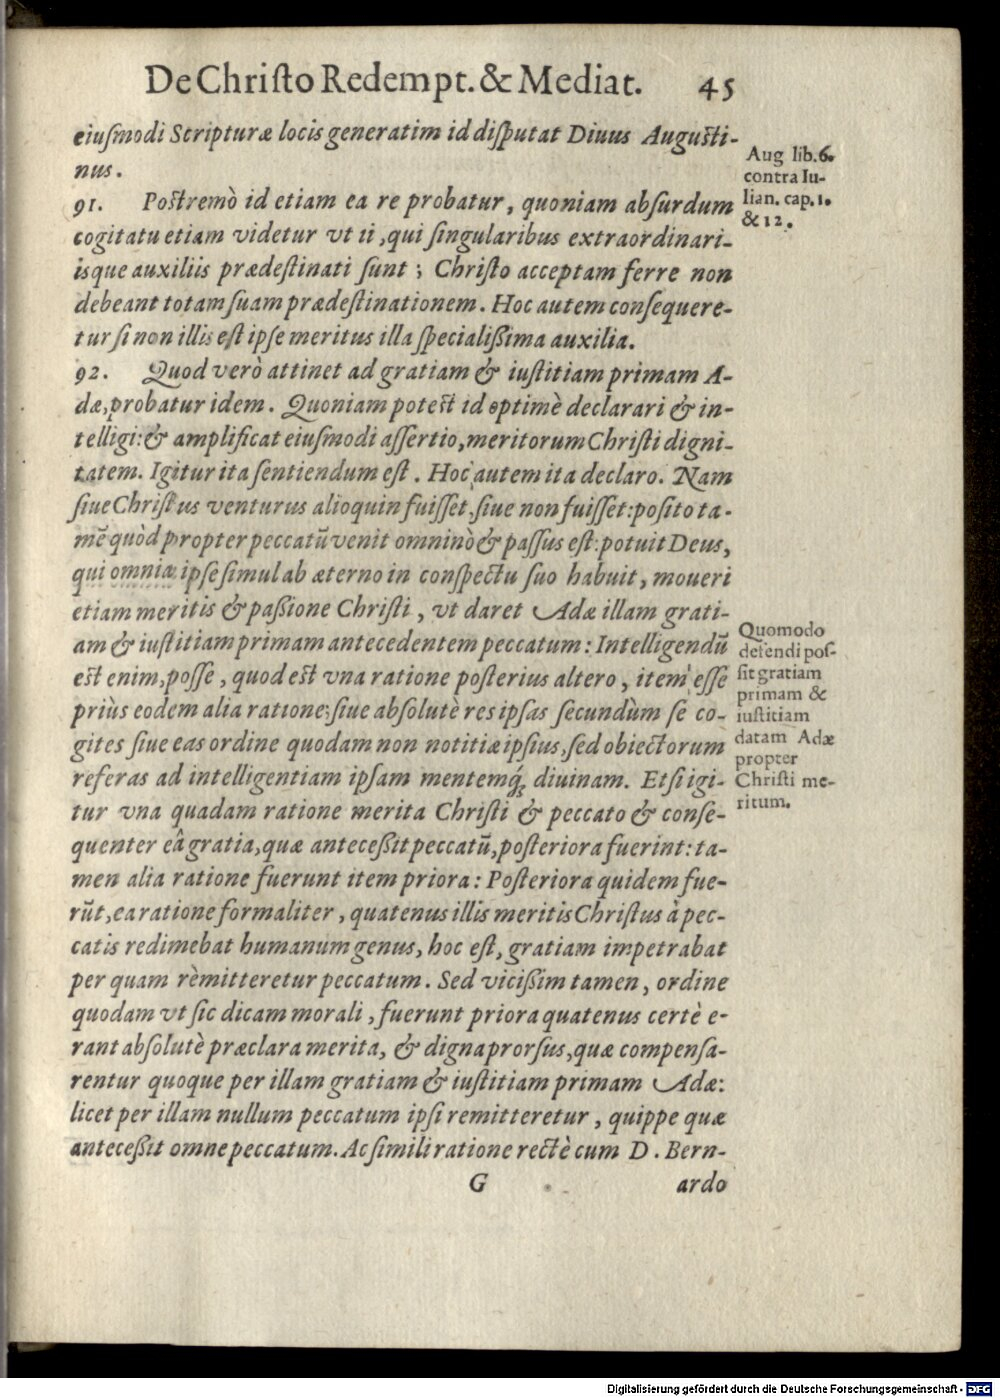 De Chriſto Redempt. & Mediat. 45
eiuſmodi Scripturæ locis generatim id diſputat Diuus Auguſti-
nus.
Aug lib. 6.
contra Iu-
lian. cap. 1.
& 12.
91. Poſtremò id etiam ea re probatur, quoniam abſurdum
cogitatu etiam videtur vt ii, qui ſingularibus extraordinari-
isque auxiliis prædeſtinati ſunt; Chriſto acceptam ferre non
debeant totam ſuam prædeſtinationem. Hoc autem conſequere-
tur ſi non illis eſt ipſe meritus illa ſpecialißima auxilia.
92. Quod verò attinet ad gratiam & iuſtitiam primam A-
dæ, probatur idem. Quoniam poteſt id optimè declarari & in-
telligi: & amplificat eiuſmodi aſſertio, meritorum Chriſti digni-
tatem. Igitur ita ſentiendum eſt. Hoc autem ita declaro. Nam
ſiue Chriſtus venturus alioquin fuiſſet, ſiue non fuiſſet: poſito ta-
mē quòd propter peccatū venit omninò & paſſus eſt: potuit Deus,
qui omnia ipſe ſimul ab æterno in conſpectu ſuo habuit, moueri
etiam meritis & paßione Chriſti, vt daret Adæ illam grati-
am & iuſtitiam primam antecedentem peccatum: Intelligendū
eſt enim, poſſe, quod eſt vna ratione poſterius altero, item eſſe
priùs eodem alia ratione: ſiue abſolutè res ipſas ſecundùm ſe co-
gites ſiue eas ordine quodam non notitiæ ipſius, ſed obiectorum
referas ad intelligentiam ipſam mentemq́; diuinam. Etſi igi-
tur vna quadam ratione merita Chriſti & peccato & conſe-
quenter eâ gratia, quæ anteceßit peccatū, poſteriora fuerint: ta-
men alia ratione fuerunt item priora: Poſteriora quidem fue-
rūt, ea ratione formaliter, quatenus illis meritis Chriſtus à pec-
catis redimebat humanum genus, hoc eſt, gratiam impetrabat
per quam rèmitteretur peccatum. Sed vicißim tamen, ordine
quodam vt ſic dicam morali, fuerunt priora quatenus certè e-
rant abſolutè præclara merita, & digna prorſus, quæ compenſa-
rentur quoque per illam gratiam & iuſtitiam primam Adæ:
licet per illam nullum peccatum ipſi remitteretur, quippe quæ
anteceßit omne peccatum. Ac ſimili ratione rectè cum D. Bern-
Quomodo
defendi poſ-
ſit gratiam
primam &
iuſtitiam
datam Adæ
propter
Chriſti me-
ritum.
G ardo
Digitalisierung gefördert durch die Deutsche Forschungsgemeinschaft - DFG